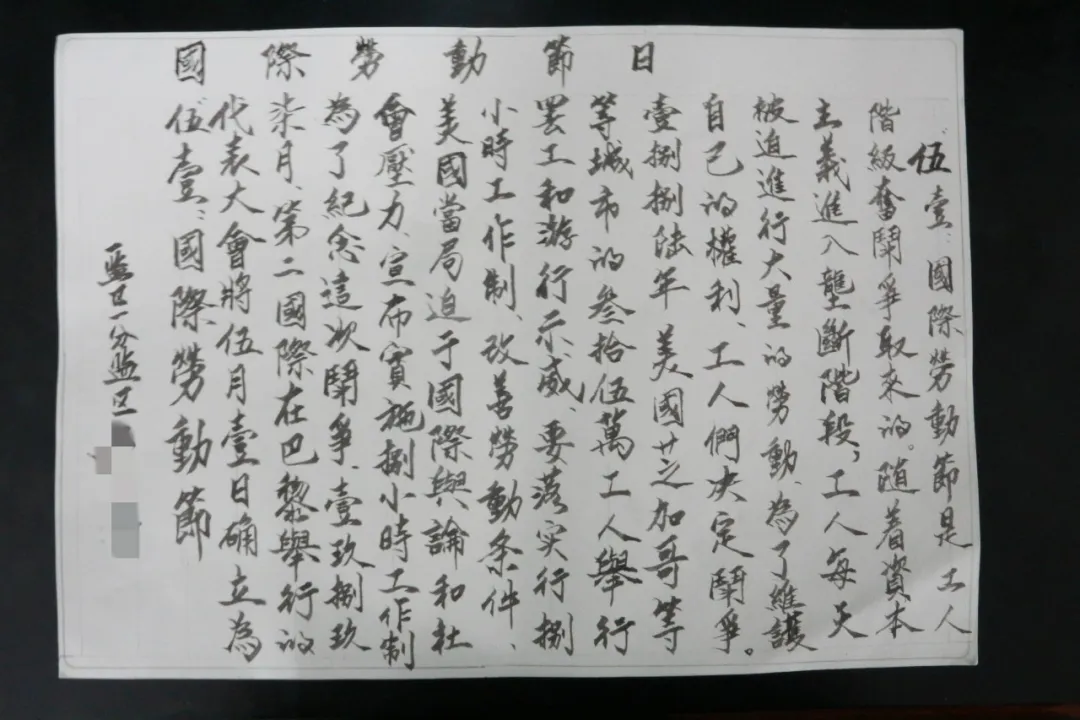 國際勞動節日
伍壹:國際勞動節是工人
階級奮鬪爭取來的。隨着資本
主義進入壟斷階段,工人每天
被迫進行大量的勞動、為了維護
自己的權利、工人們决定鬪爭。
壹捌捌陸年美國芝加哥等
等城市的叁拾伍萬工人舉行
罢工和游行示威、要落实行捌
小時工作制、改善勞動条件、
美國當局迫于國際與論和社
會壓力、宣布實施捌小時工作制
為了紀念這次鬪爭、壹玖捌玖
柒月、第二國際在巴黎舉行的
代表大會將伍月壹日确立為
伍壹:國際勞動節
一监区一分监区